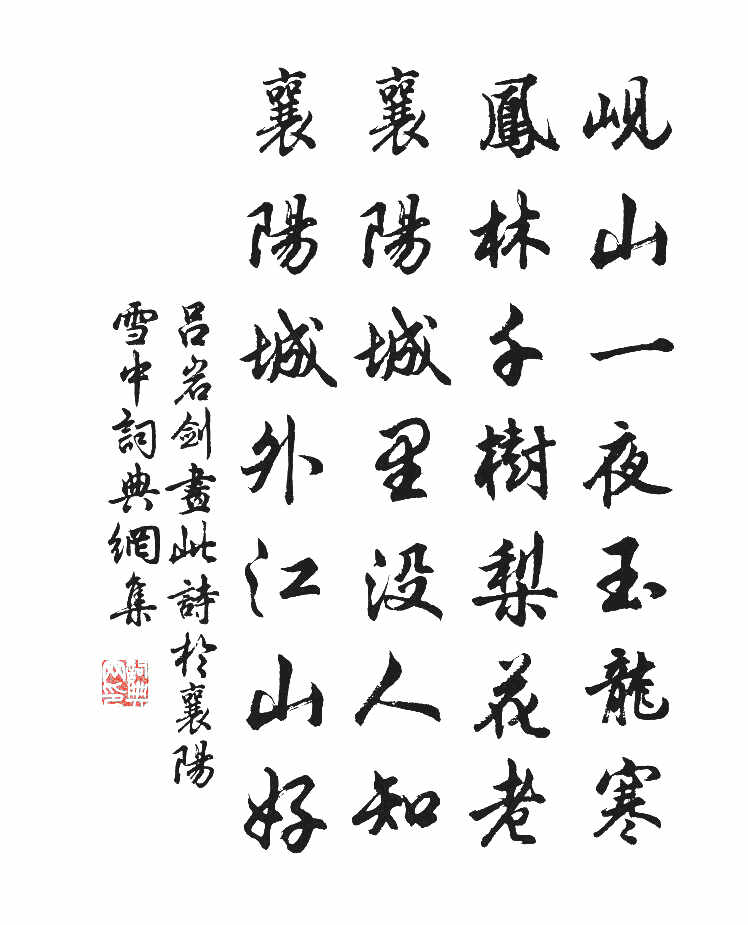 峴山一夜玉龍寒
鳳林千樹梨花老
襄陽城里没人知
襄陽城外江山好
吕岩剑畫此詩於襄陽
雪中詞典網集